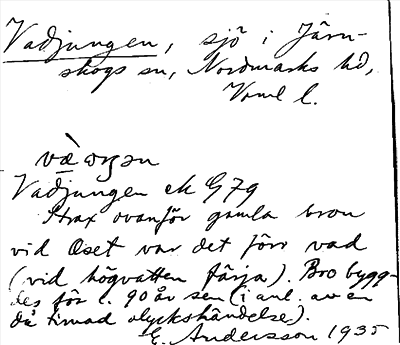 Vadjungen, sjö i Järn-
skogs sn, Nordmarks hd,
Vrml l.
Vadjungen ek G79
Strax ovanför gamla bron
vid Öset var det förr vad
(vid högvatten färja). Bro bygg-
des för c. 90 år sen (i anl. av en
då timad olyckshändelse).
E. Andersson 1935